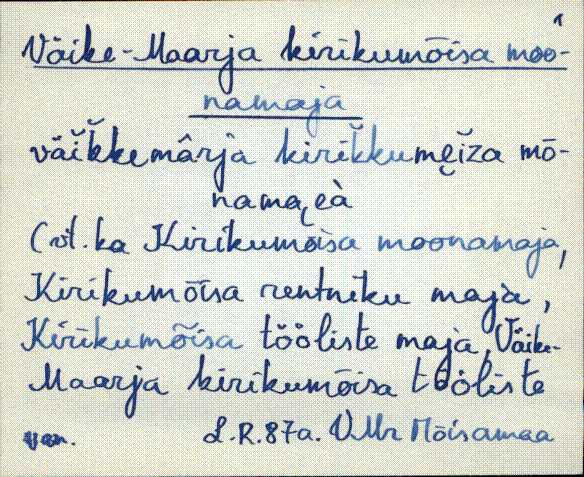 1
Väike-Maarja kirikumõisa moo-
namaja
väi̮k̆kemârja kirik̆kume̮i̮za mō-
nama₍eà
(vt. ka Kirikumõisa moonamaja,
Kirikumõisa rentniku maja,
Kirikumõisa tööliste maja, Väike-
Maarja kirikumõisa tööliste
van. L.R. 87a. VMr Mõisamaa